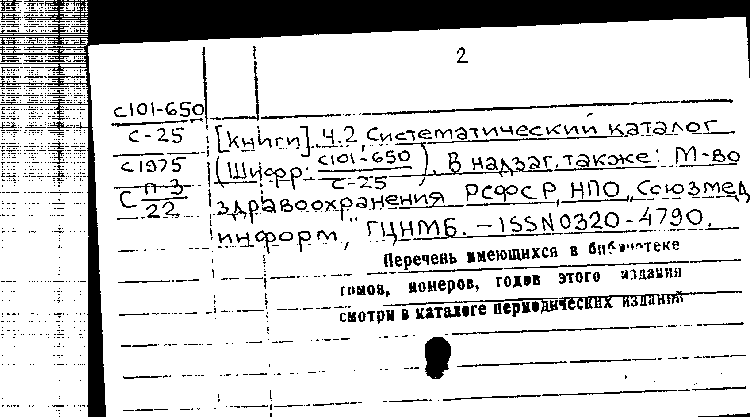 2
с101-650
С-25
с1975
С п-3
22
[Книги]. Ч.2, Систематический каталог
(Шифр: с101-650
С-25). В надзаг. также: М-во
здравоохранения РСФСР, НПО „Союзмед
информ," ГЦНМБ. – ISSN 0320-4790.
Перечень имеющихся в библиотеке
томов, номеров, годов этого издания
смотри в каталоге периодических изданий